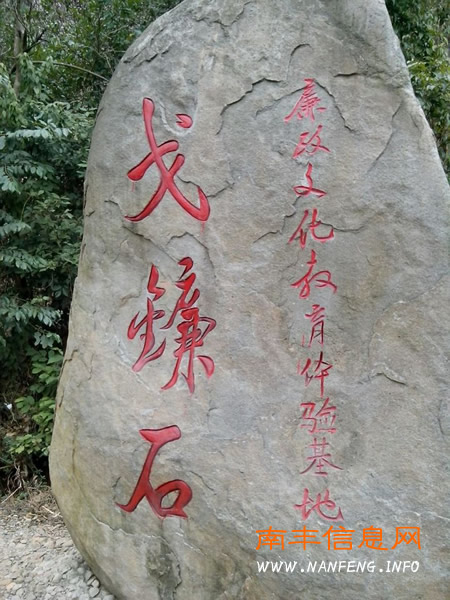 廉政文化教育体验基地
戈鐮石
南丰信息网
WWW.NANFENG.INFO